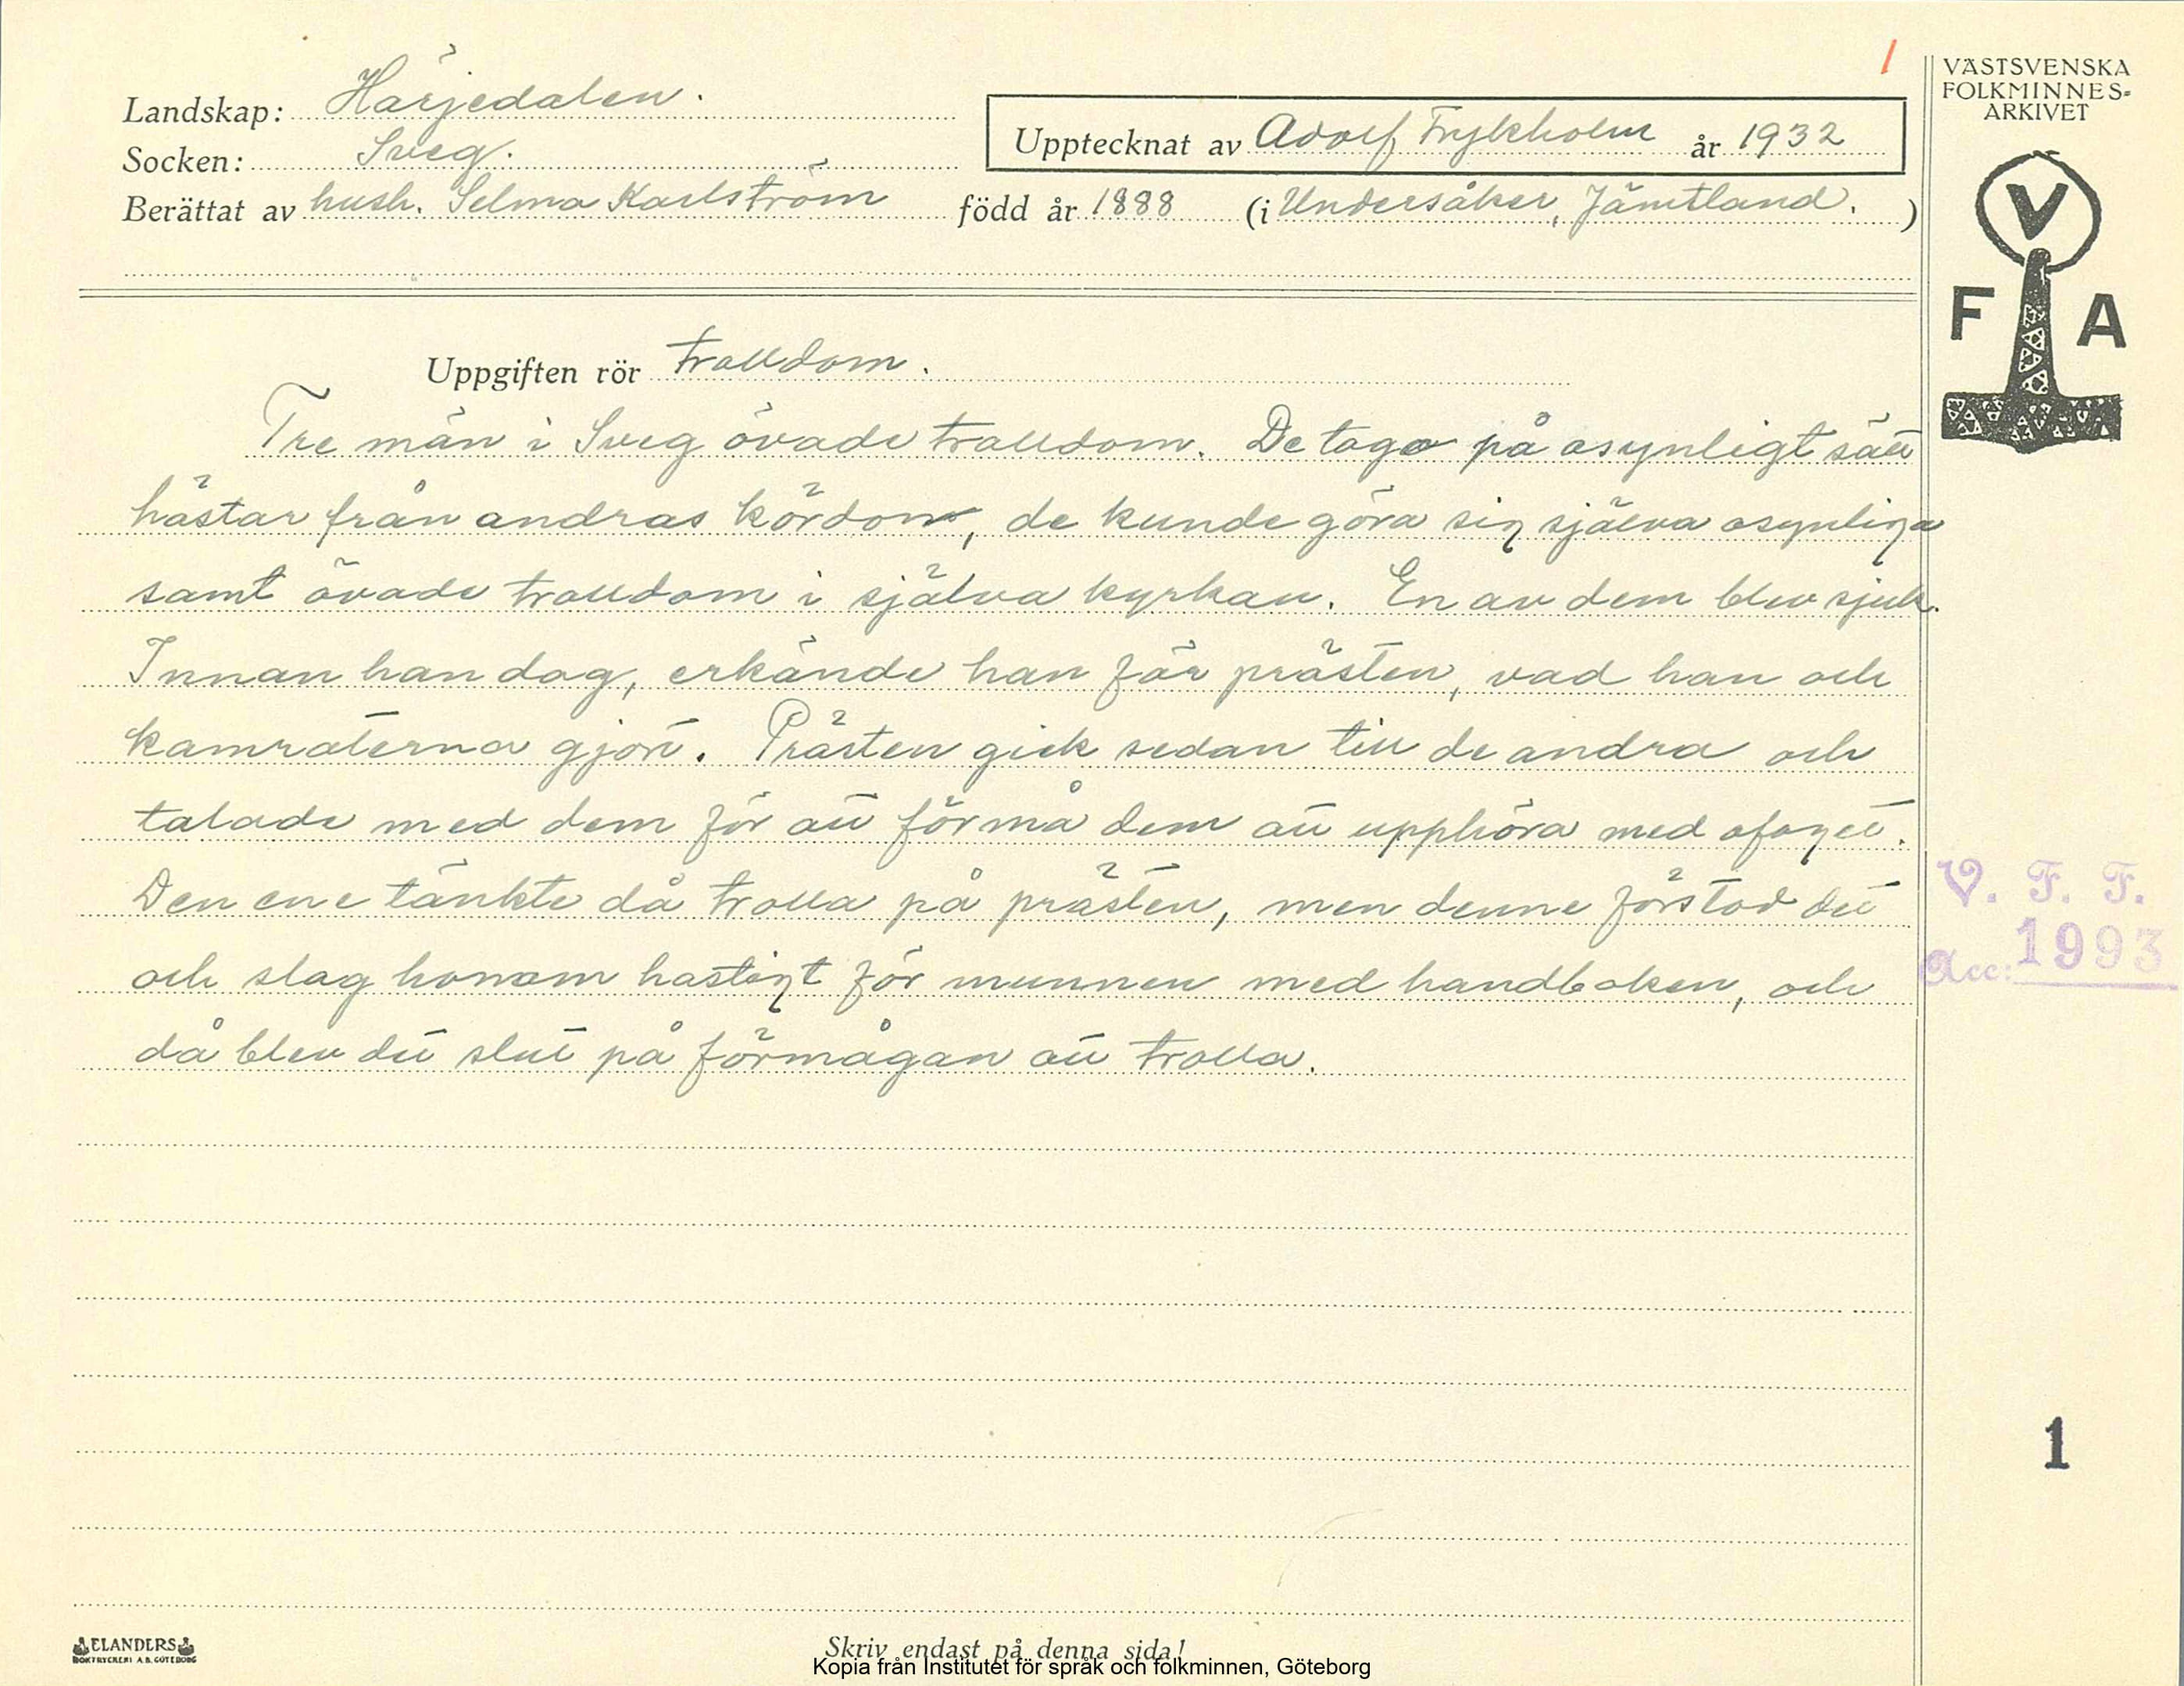 1
VÄSTSVENSKA
FOLKMINNES-
ARKIVET
Landskap: Härjedalen.
Socken: Sveg.
Upptecknat av Adolf Frykholm år 1932
Berättat av hush. Selma Karlström född år 1888 (i Undersåker, Jämtland.)
V
F A
Uppgiften rör trolldom.
Tre män i Sveg övade trolldom. De togo på osynligt sätt
hästar från andras kördon, de kunde göra sig själva osynliga
samt övade trolldom i själva kyrkan. En av dem blev sjuk.
Innan han dog, erkände han för prästen, vad han och
kamraterna gjort. Prästen gick sedan till de andra och
talade med dem för att förmå dem att upphöra med ofoget.
Den ene tänkte då trolla på prästen, men denne förstod det
och slog honom hastigt för munnen med handboken, och
då blev det slut på förmågan att trolla.
V. F. F.
Acc: 1993
1
ELANDERS
BOKTRYCKERI A.B. GÖTEBORG
Skriv endast på denna sida!
Kopia från Institutet för språk och folkminnen, Göteborg